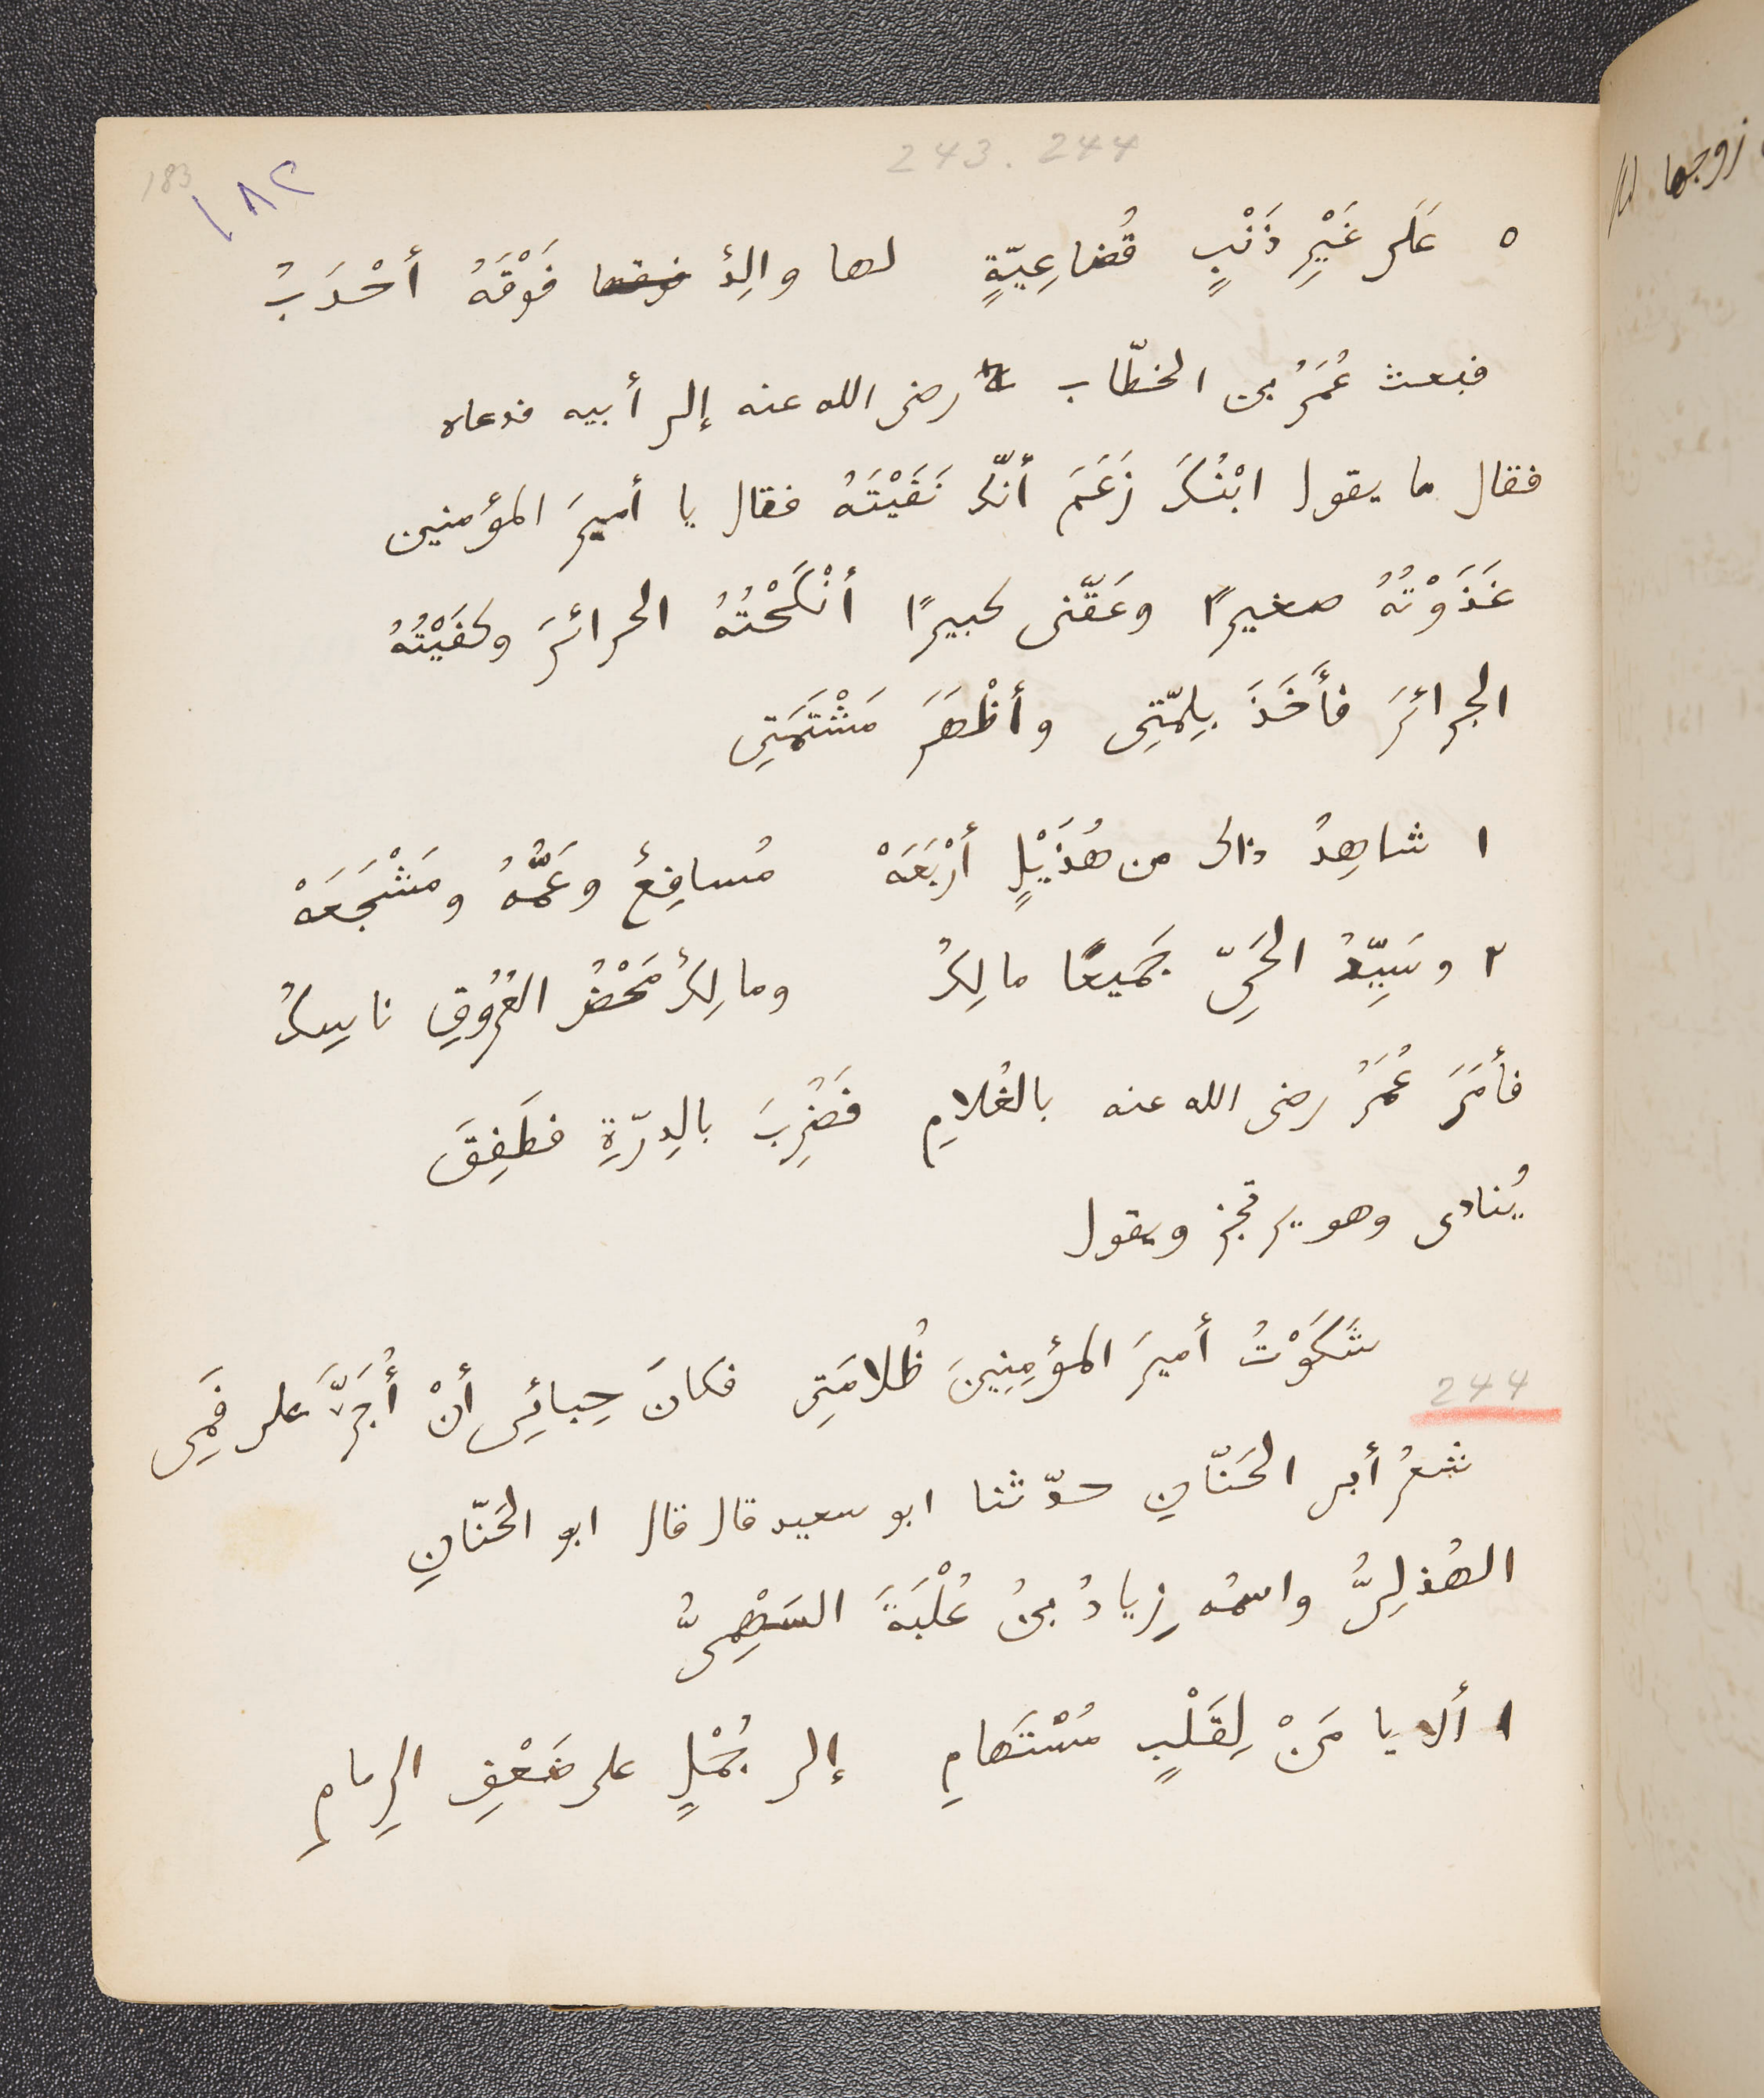 243. 244
183
١٨٢
٥ عَلَى غَيْرِ ذَنْبٍ قُضاعِيّةٍ لها والِدٌ فَوْقَهُ أحْدَبُ
فبعث عُمَرُ بن الخطّاب رضى الله عنه إلى أبيه فدعاه
فقال ما يقول ابْنُكَ زَعَمَ أنّك نَفَيْتَهُ فقال يا أميرَ المؤمنين
غَذَوْتُهُ صغيرًا وعَقّنى كبيرًا أنْكَحْتُهُ الحرائرَ وكفَيْتُهُ
الجرائرَ فأَخَذَ بِلِمّتِى وأظْهَرَ مَشْتَمَتِى
١ شاهِدُ ذاك من هُذَيْلٍ أرْبَعَهْ مُسافِعٌ وعَمُّهُ ومَشْجَعَهْ
٢ وسَيِّدُ الحَىِّ جَميعًا مالِكُ ومالِكٌ مَحْضُ العُرُوقِ ناسِكُ
فأمَرَ عُمَرُ رضى الله عنه بالغُلامِ فَضُرِبَ بالدِرّةِ فطَفِقَ
يُنادى وهو يرتجز ويقول
شَكَوْتُ أميرَ المؤمِنِينَ ظُلامَتِى فكانَ حِبائِى أنْ أُجَرَّ على فَمِى
244
شعرُ أبى الحَنّانِ حدّثنا ابو سعيد قال قال ابو الحَنّانِ
الهُذلِىُّ واسمُه زِيادُ بنُ عُلْبَةَ السَهْمِىُّ
١ ألا يا مَنْ لِقَلْبٍ مُسْتَهامِ إلى جُمْلٍ على ضَعْفِ الرِمامِ
زوجها